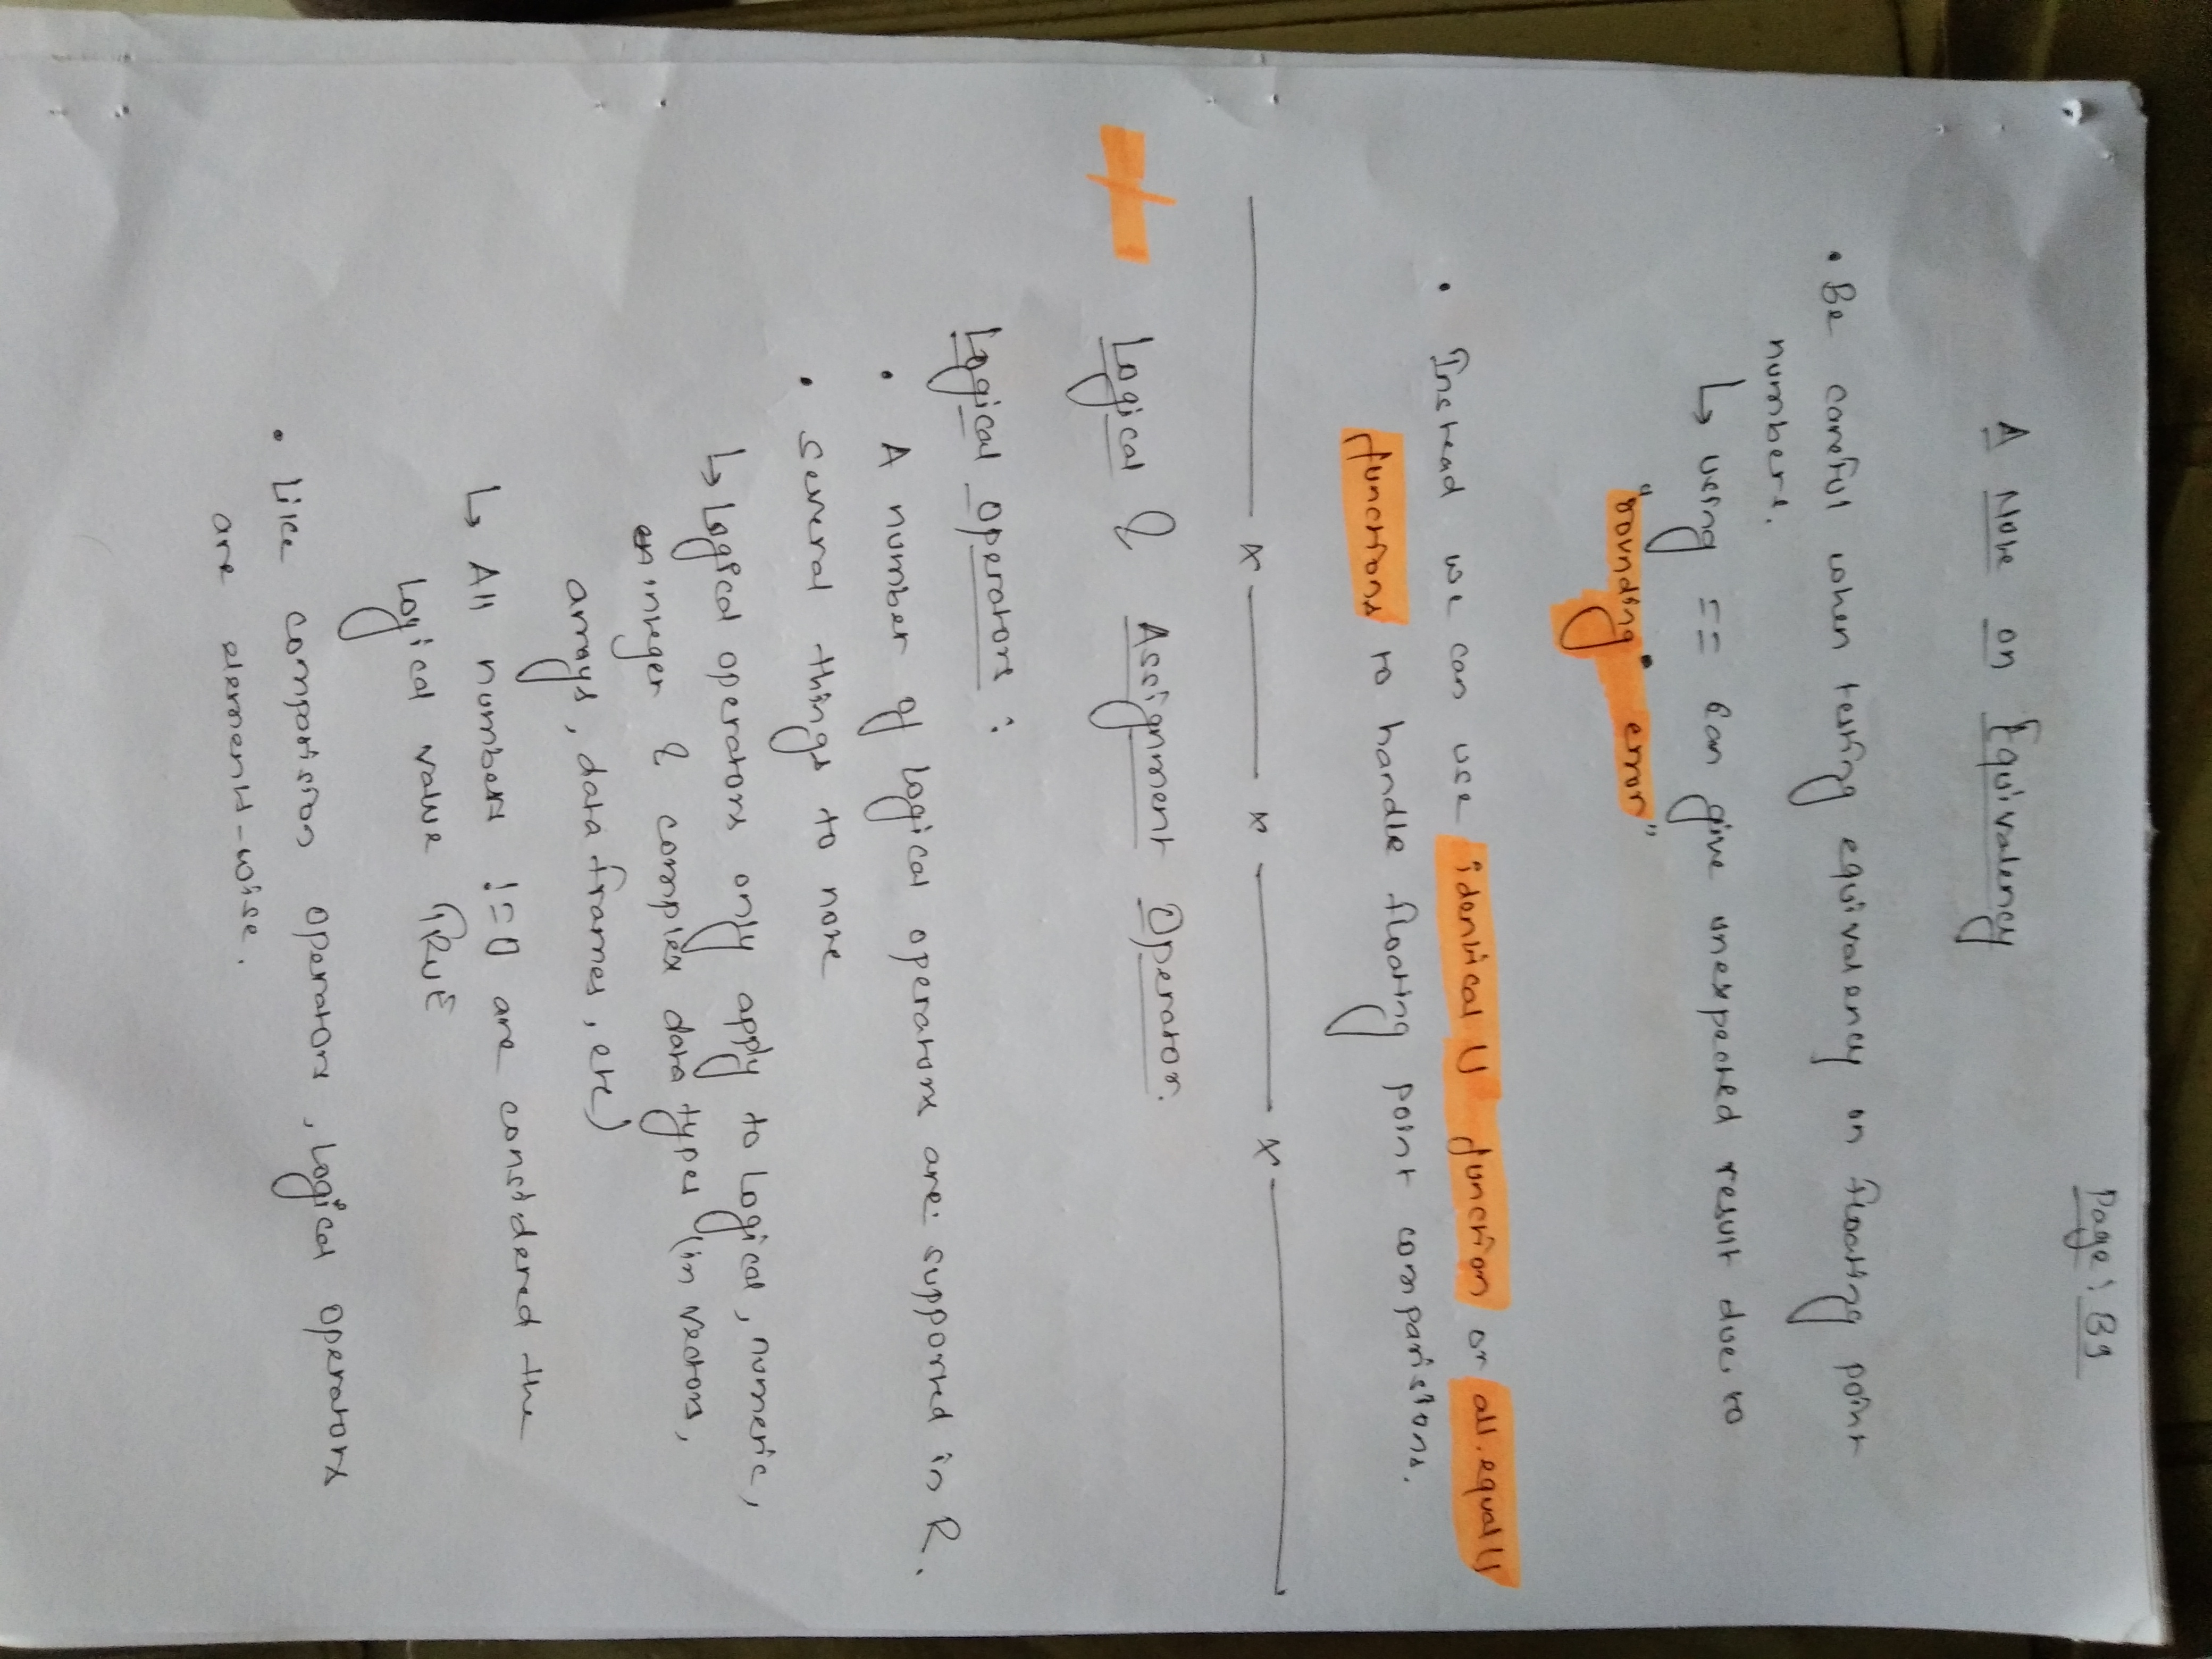 Page: 89
A Note on Equivalency
• Be careful when testing equivalency on floating point
numbers.
↳ using == can give unexpected result due to
"rounding error"
• Instead we can use identical () function or all.equal()
functions to handle floating point comparisions.
x x x
Logical & Assignment Operator.
Logical Operators :
• A number of logical operators are supported in R.
• Several things to note
↳ Logical operators only apply to logical, numeric,
integer & complex data types (in vectors,
arrays, data frames, etc)
↳ All numbers != 0 are considered the
logical value TRUE
• Like comparision operators, logical operators
are element-wise.